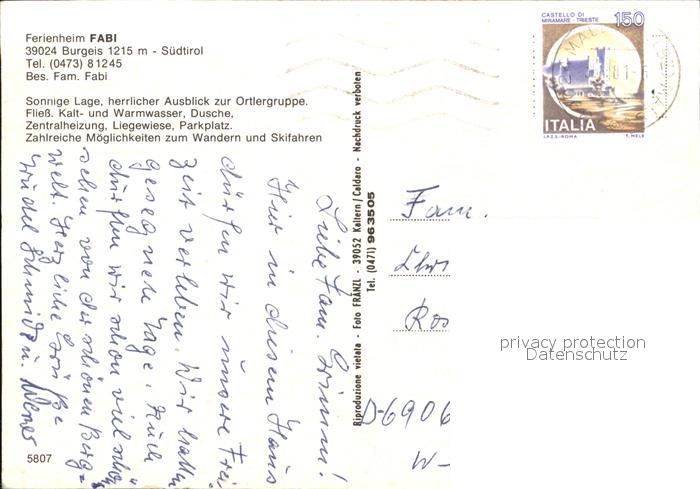 Ferienheim FABI
39024 Burgeis 1215 m - Südtirol
Tel. (0473) 81245
Bes. Fam. Fabi
Sonnige Lage, herrlicher Ausblick zur Ortlergruppe.
Fließ. Kalt- und Warmwasser, Dusche,
Zentralheizung, Liegewiese, Parkplatz.
Zahlreiche Möglichkeiten zum Wandern und Skifahren
Liebe Fam. Grimm!
Hier in diesem Haus
dürfen wir unsere Frei
zeit verleben. Wir hatten
gesegnete Tage. Auch
dürfen wir schon viel schön
sehen von der schönen Berg=
welt. Herzliche Grüße
Trudel Schmidt u. Werner
5807
Riproduzione vietata - Foto FRANZL - 39052 Kaltern/Caldaro - Nachdruck verboten
Tel. (0471) 963505
CASTELLO DI
MIRAMARE - TRIESTE
150
ITALIA
I.P.Z.S.-ROMA
T. MELE
MAL
Fam.
Ros
D-6906
W-
privacy protection
Datenschutz